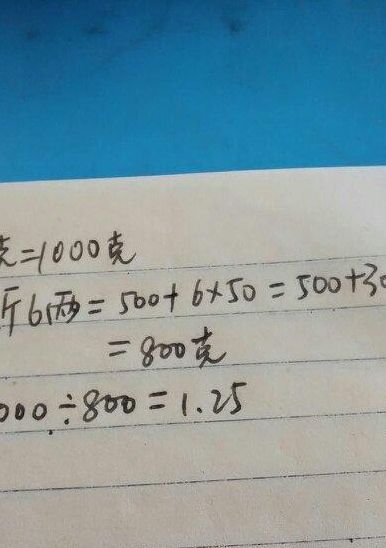 克=1000克
斤6两=500+6×50=500+30
=800克
000÷800=1.25